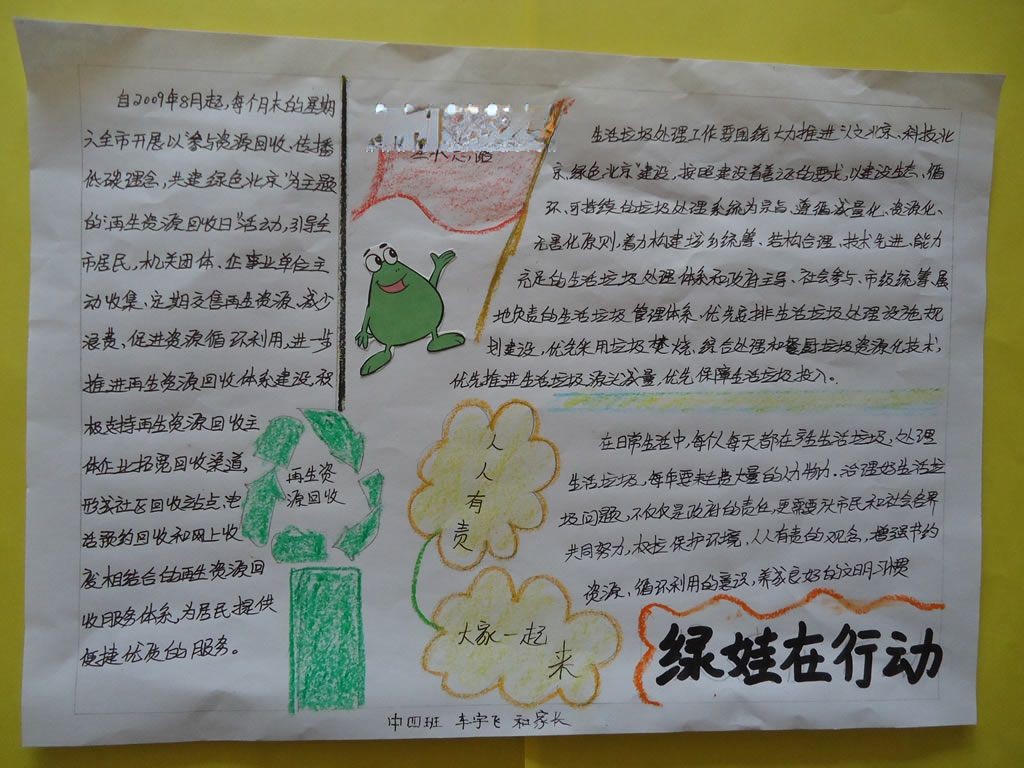 自2009年8月起,每个月末的星期
六全市开展以“参与资源回收、传播
低碳理念,共建绿色北京”为主题
的“再生资源回收日”活动,引导全
市居民,机关团体、企事业单位主
动收集、定期交售再生资源、减少
浪费、促进资源循环利用,进一步
推进再生资源回收体系建设,积
极支持再生资源回收主
体企业拓宽回收渠道,
形成社区回收站点、电
话预约回收和网上收
废相结合的再生资源回
收服务体系,为居民提供
便捷优质的服务。
再生资
源回收
生活垃圾处理工作要围绕大力推进“人文北京、科技北
京、绿色北京”建设,按照建设的要求,以建设生态、循
环、可持续的垃圾处理系统为宗旨,遵循减量化、资源化、
无害化原则,着力构建城乡统筹、结构合理、技术先进、能力
充足的生活垃圾处理体系和政府主导、社会参与、市级统筹、属
地负责的生活垃圾管理体系,优先安排生活垃圾处理设施规
划建设,优先采用垃圾焚烧、综合处理和餐厨垃圾资源化技术,
优先推进生活垃圾源头减量,优先保障生活垃圾投入。
人
人
有
责
大家一起
来
在日常生活中,每人每天都在产生生活垃圾,处理
生活垃圾,每年要花费大量的人力物力。治理好生活垃
圾问题,不仅仅是政府的责任,更需要市民和社会各界
共同努力,树立保护环境,人人有责的观念,增强节约
资源、循环利用的意识,养成良好的文明习惯
绿娃在行动
中四班 车宇飞 和家长